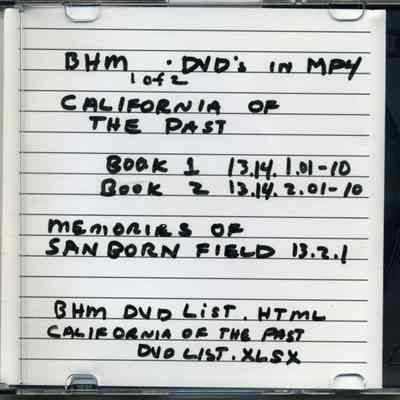 BHM · DVD's IN MP4
1 of 2
CALIFORNIA OF
THE PAST
BOOK 1 13.14.1.01-10
BOOK 2 13.14.2.01-10
MEMORIES OF
SANBORN FIELD 13.2.1
BHM DVD LIST.HTML
CALIFORNIA OF THE PAST
DVD LIST.XLSX